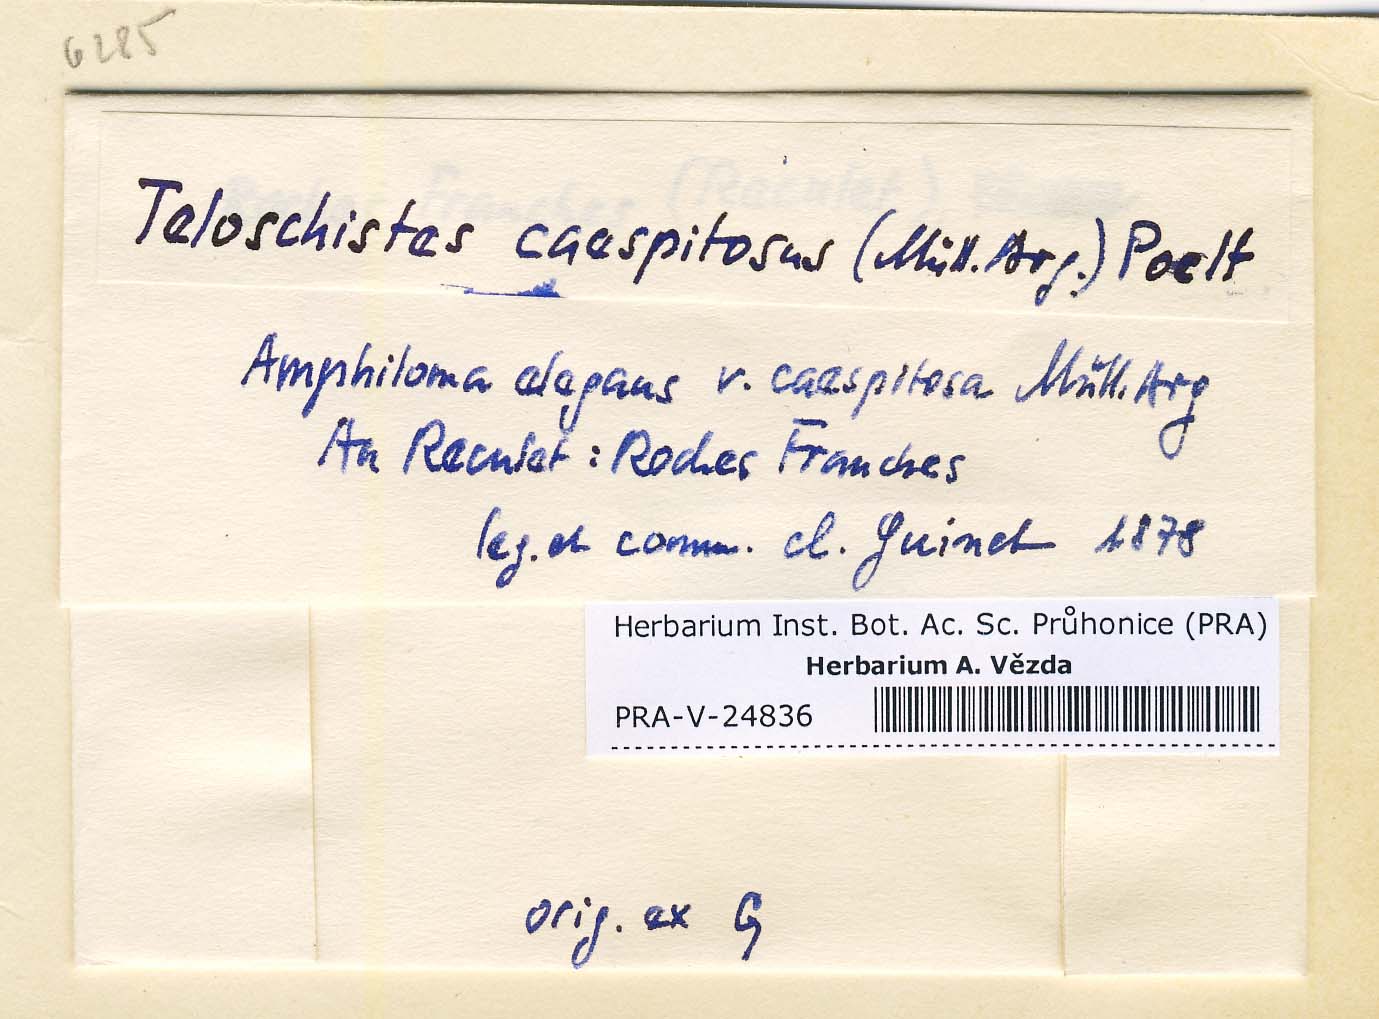 6285
Teloschistes caespitosus (Müll. Arg.) Poelt
Amphiloma elegans v. caespitosa Müll. Arg
Au Reculet : Roches Franches
leg. et comm. cl. Guinet 1878
Herbarium Inst. Bot. Ac. Sc. Průhonice (PRA)
Herbarium A. Vězda
PRA-V-24836
orig. ex G